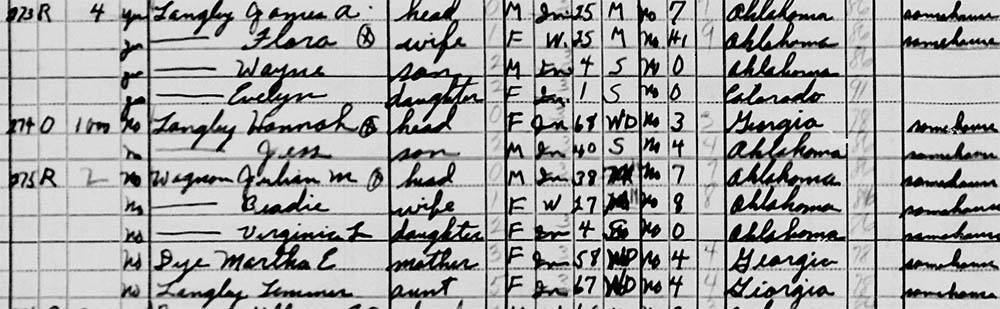 273 R 4 yes Langley James A. head 0 M In 25 M no 7 Oklahoma 86 same house
yes —— Flora wife 1 F W. 25 M no H1 9 Oklahoma 86 same house
yes —— Wayne son 2 M In 4 S no 0 Oklahoma 86
yes —— Evelyn daughter 2 F In 1 S no 0 Colorado 91
274 O 1000 no Langley Hannah head 0 F In 68 WD no 3 3 Georgia 78 same house
no —— Jess son 2 M In 40 S no 4 4 Oklahoma same house
275 R 2 no Wagnon Julian M head 0 M In 38 no 7 7 Oklahoma same house
no —— Beadie wife 1 F W 27 no 8 Oklahoma 86 same house
no —— Virginia L daughter 2 F In 4 S no 0 Oklahoma same house
no Dye Martha E mother 3 F In 58 WD no 4 4 Georgia 78 same house
no Langley Temmer aunt 5 F In 67 WD no 4 4 Georgia 78 same house